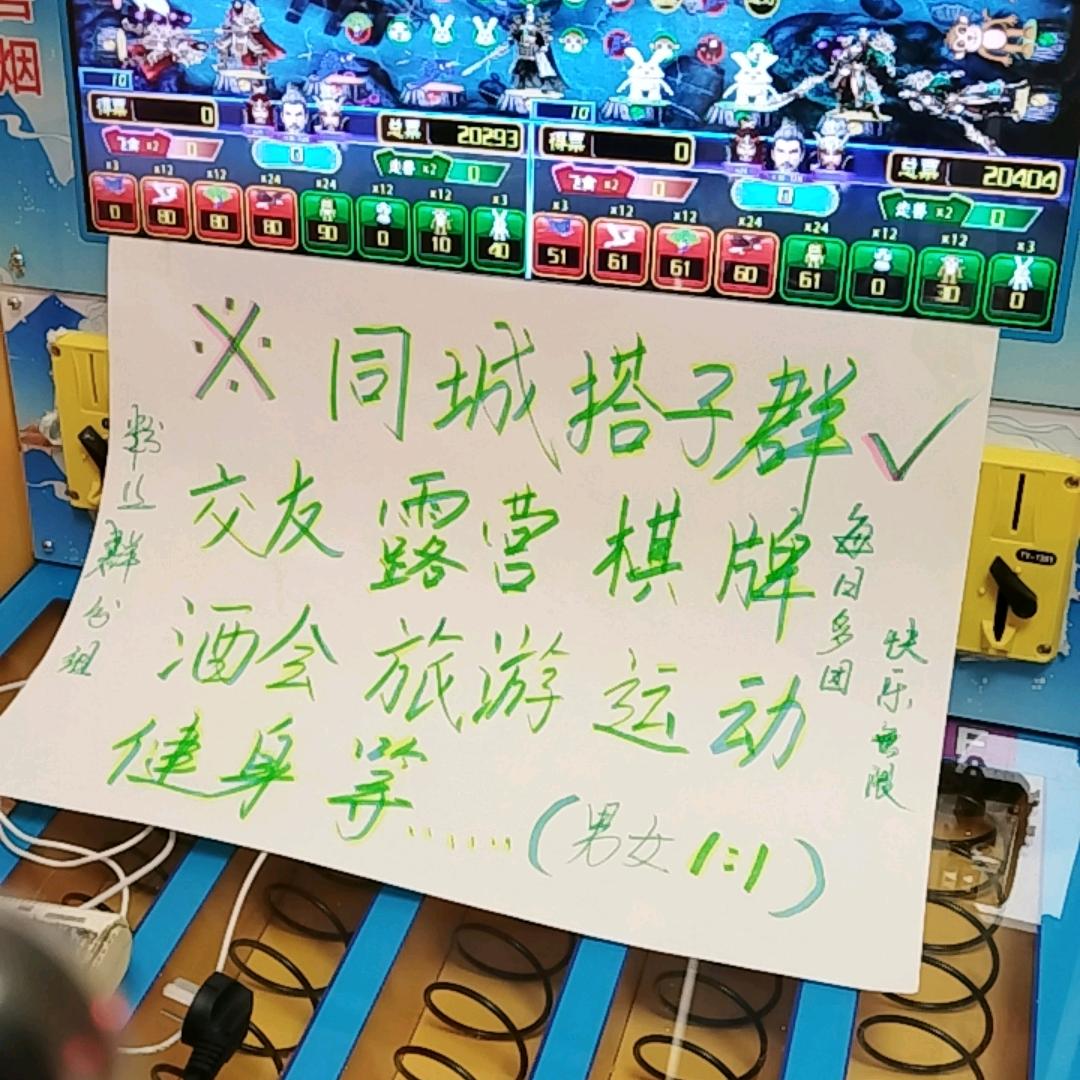 烟
10
得票 0
总票 20293
飞禽 x2 0
0
走兽 x2 0
x3 x12 x12 x24 x24 x12 x12 x3
0 80 80 80 90 0 10 40
10
得票 0
总票 20404
飞禽 x2 0
0
走兽 x2 0
x3 x12 x12 x24 x24 x12 x12 x3
51 61 61 60 61 0 30 0
※ 同城搭子群 ✓
交友 露营 棋牌
酒会 旅游 运动
健身 等......(男女1:1)
群分组
每日多团
快乐無限